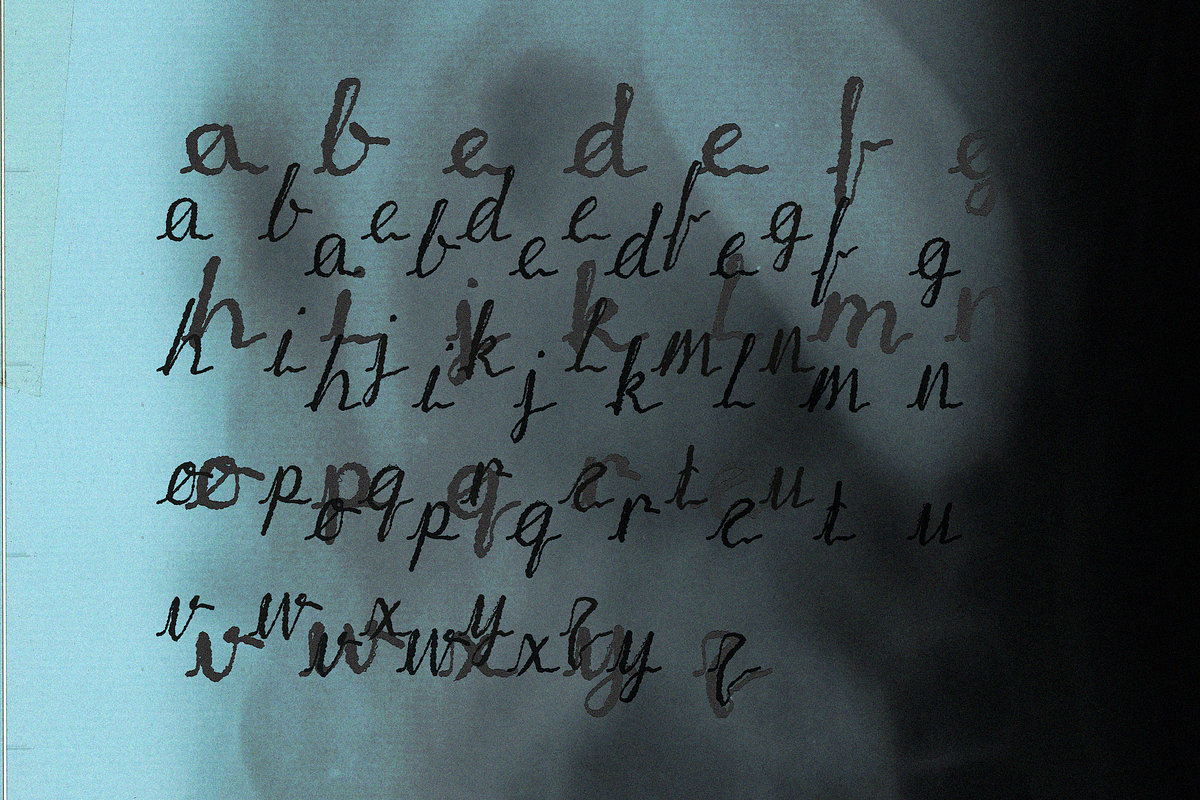 a b c d e f g
a b c d e f g
a b c d e f g
h i j k l m n
h i j k l m n
h i j k l m n
o p q r s t u
o p q r
o p q r s t u
v w x y z
v w x y z
v w x y z